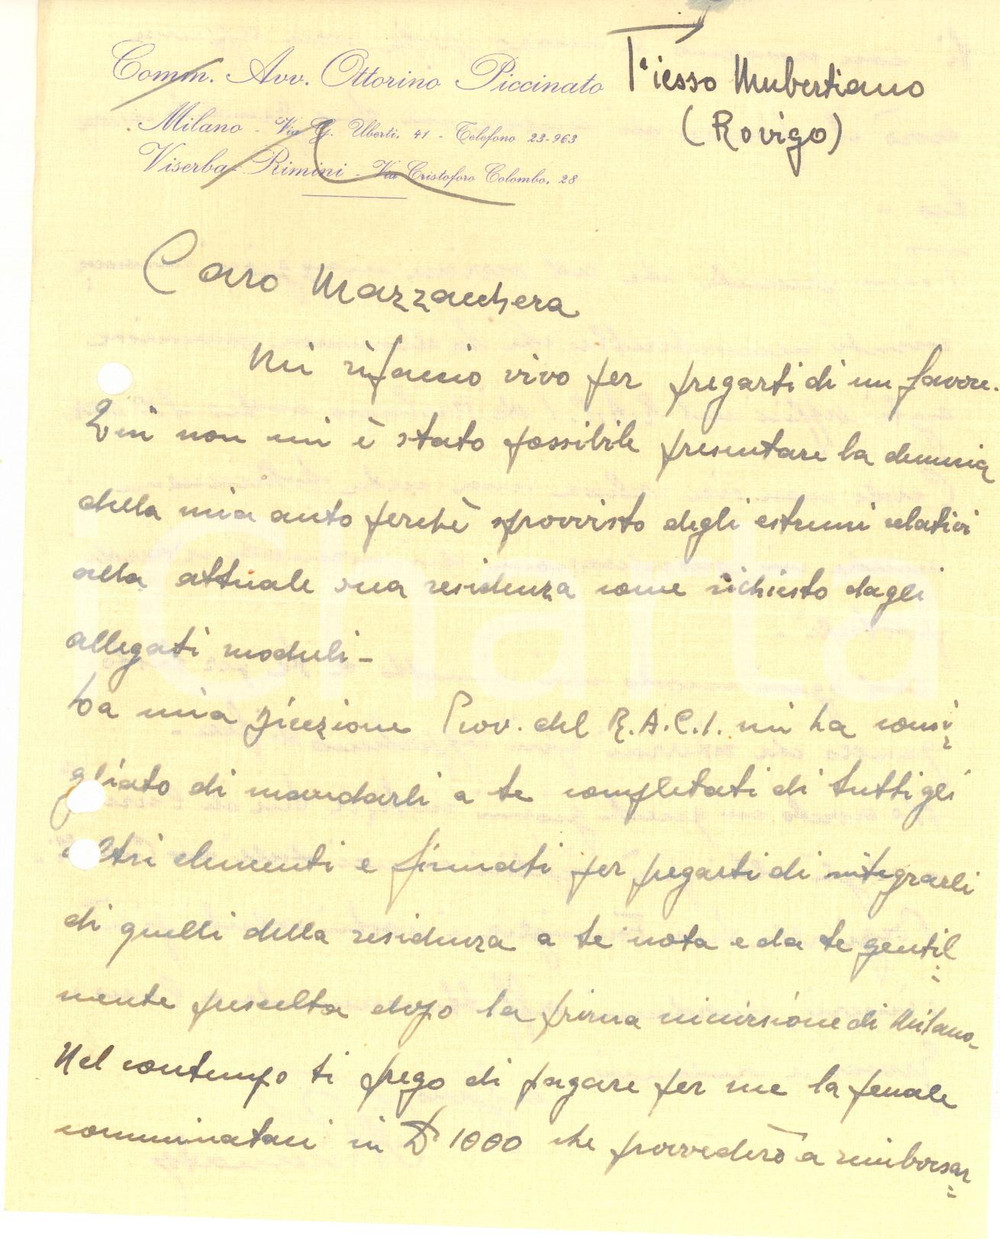 Comm. Avv. Ottorino Piccinato
Milano - Via G. Uberti, 41 - Telefono 23-963
Viserba-Rimini - Via Cristoforo Colombo, 28
Fiesso Umbertiano
(Rovigo)
Caro Mazzucchera
Mi rifaccio vivo per pregarti di un favore.
Qui non mi è stato possibile presentare la denuncia
della mia auto perchè sprovvisto degli estremi relativi
alla attuale sua residenza come richiesto dagli
allegati moduli -
La mia Direzione Prov. del R.A.C.I. mi ha consi
gliato di mandarli a te completati di tutti gli
altri elementi e firmati per pregarti di integrarli
di quelli della residenza a te nota e da te gentil
mente prescelta dopo la prima incursione di Milano.
Nel contempo ti prego di pagare per me la penale
comminatami in £ 1000 che provvederò a rimborsar
iCharta